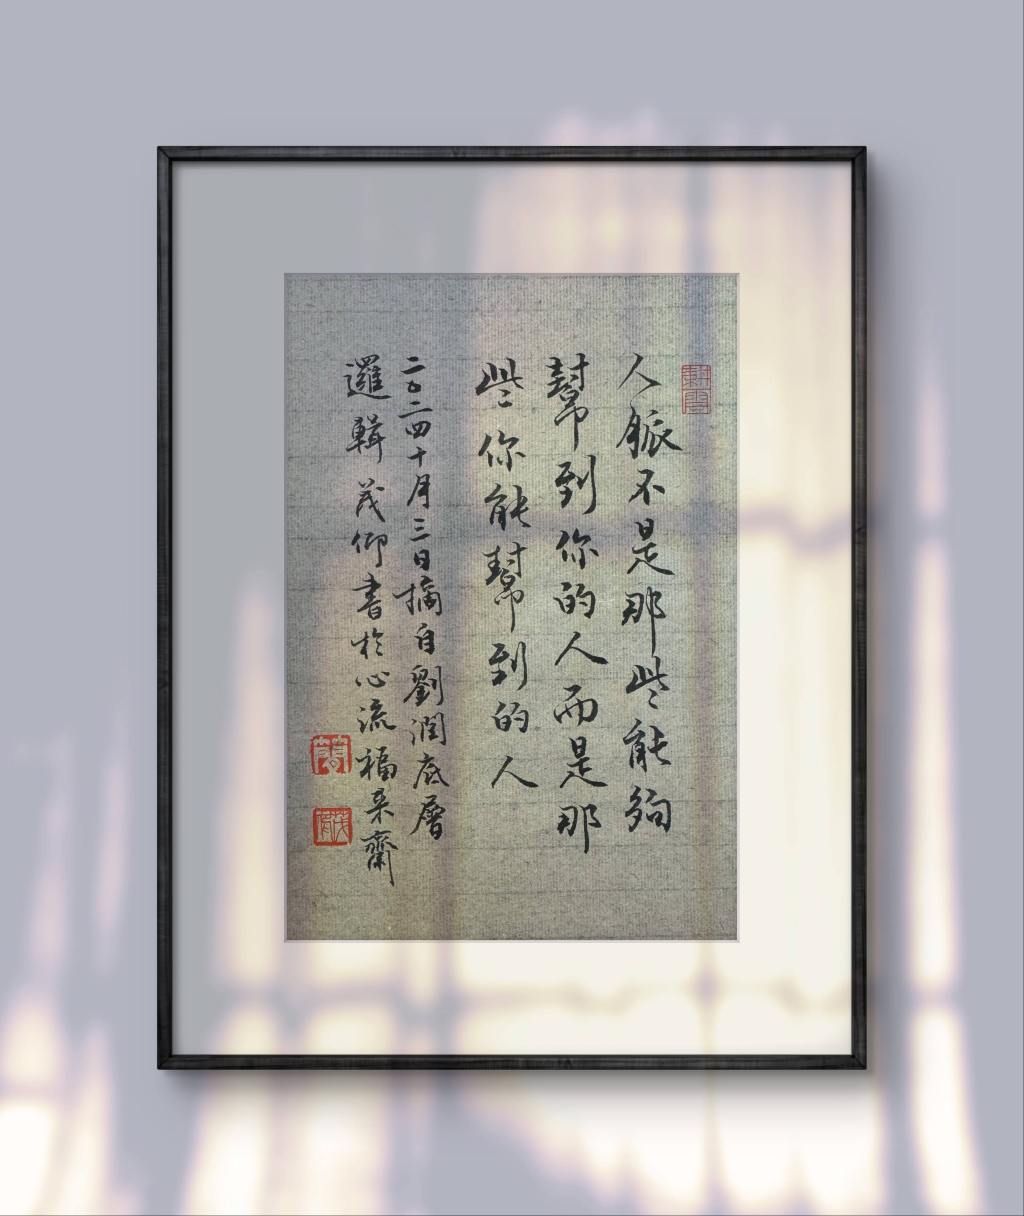 人脈不是那些能夠
幫到你的人而是那
些你能幫到的人
二〇二四十月三日摘自劉潤底層
邏輯茂仰書於心流福来齋